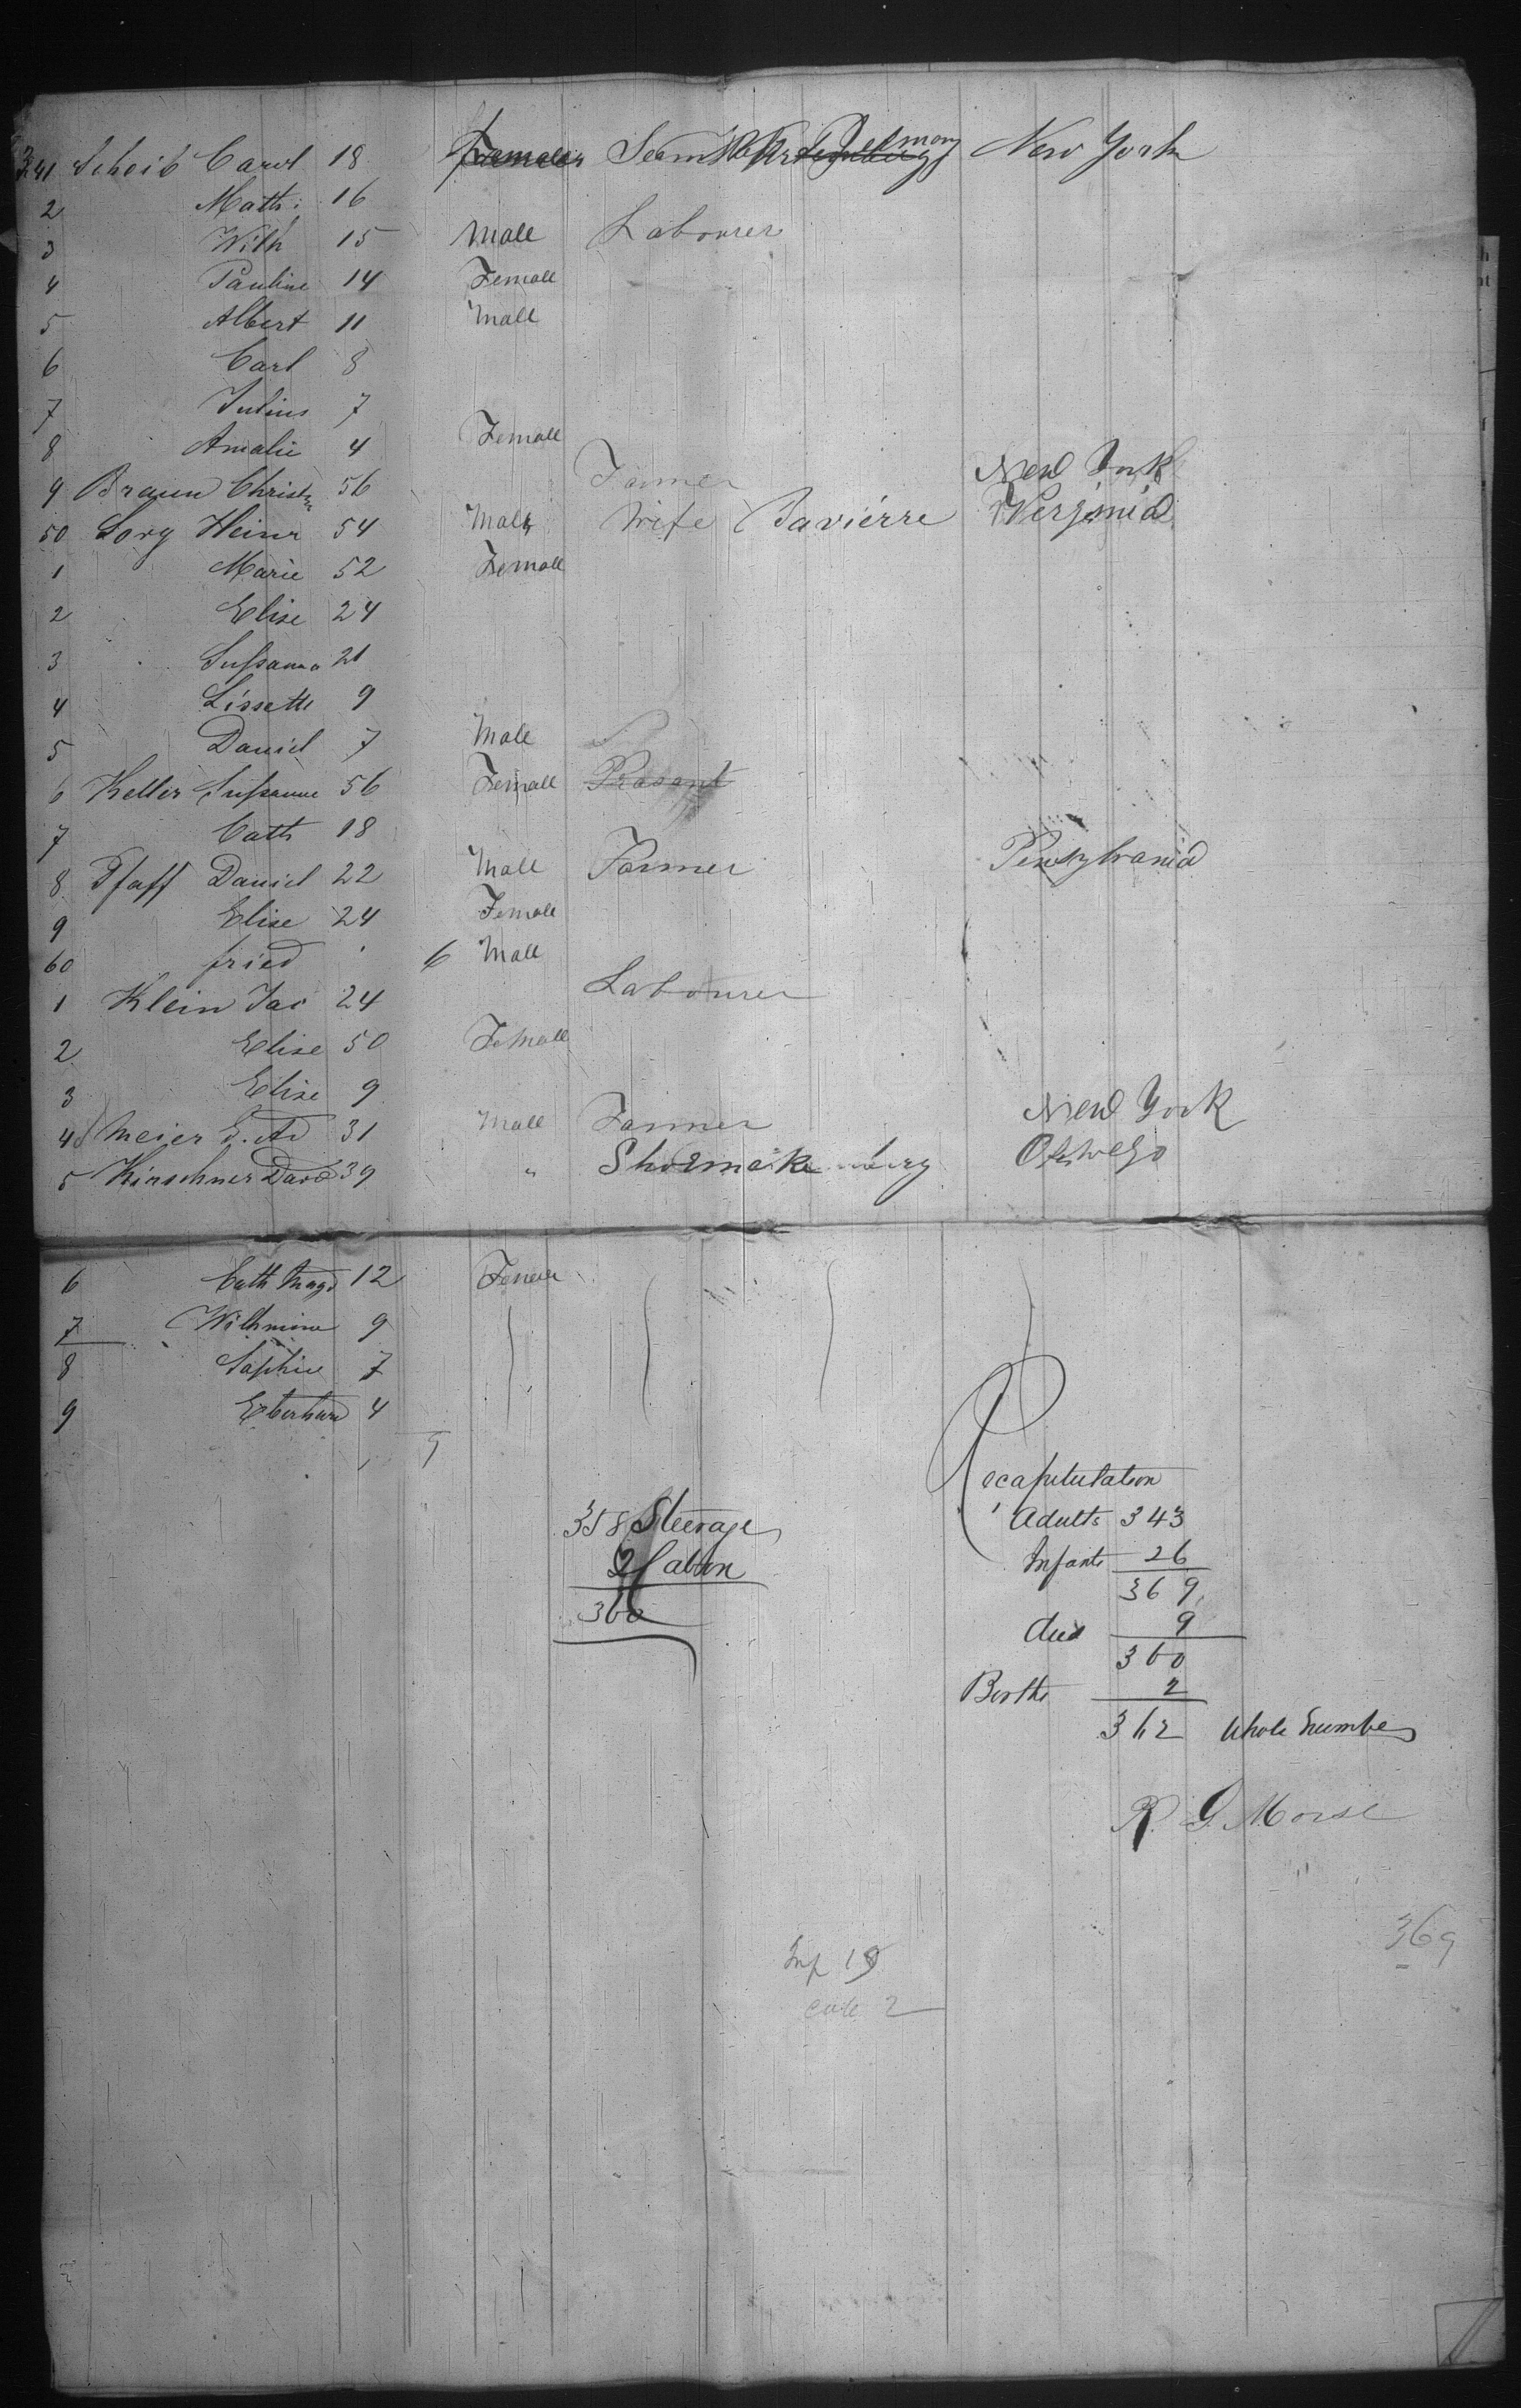 341 Scheib Carol 18 New York
2 Math: 16
3 Wilh 15 Male Labourer
4 Pauline 14 Female
5 Albert 11 Male
6 Carl 8
7 Julius 7
8 Amalie 4 Female
9 Braun Christ 56 Farmer New York
50 Sorg Heinr 54 Male Wife Bavierre Verginia
1 Marie 52 Female
2 Elise 24
3 Sußanna 21
4 Lissette 9
5 Daniel 7 Male
6 Keller Sußanne 56 Female Peasant
7 Cath 18
8 Pfaff Daniel 22 Male Farmer Pensylvania
9 Elise 24 Female
60 fried 6 Male
1 Klein Jac 24 Labourer
2 Elise 50 Female
3 Elise 9
4 Meier G. Ad 31 Male Farmer New York
5 Kirschner David 39 " Shoemaker Oswego
6 Cath Magd 12 Female
7 Wilhmine 9
8 Sophie 7
9 Eberhard 4
Recapitulation
358 Steerage
Adults 343
2 Cabin
Infants 26
360
369
died 9
360
Births 2
362 Whole Number
R. G. Morse
369
Inf 19
2